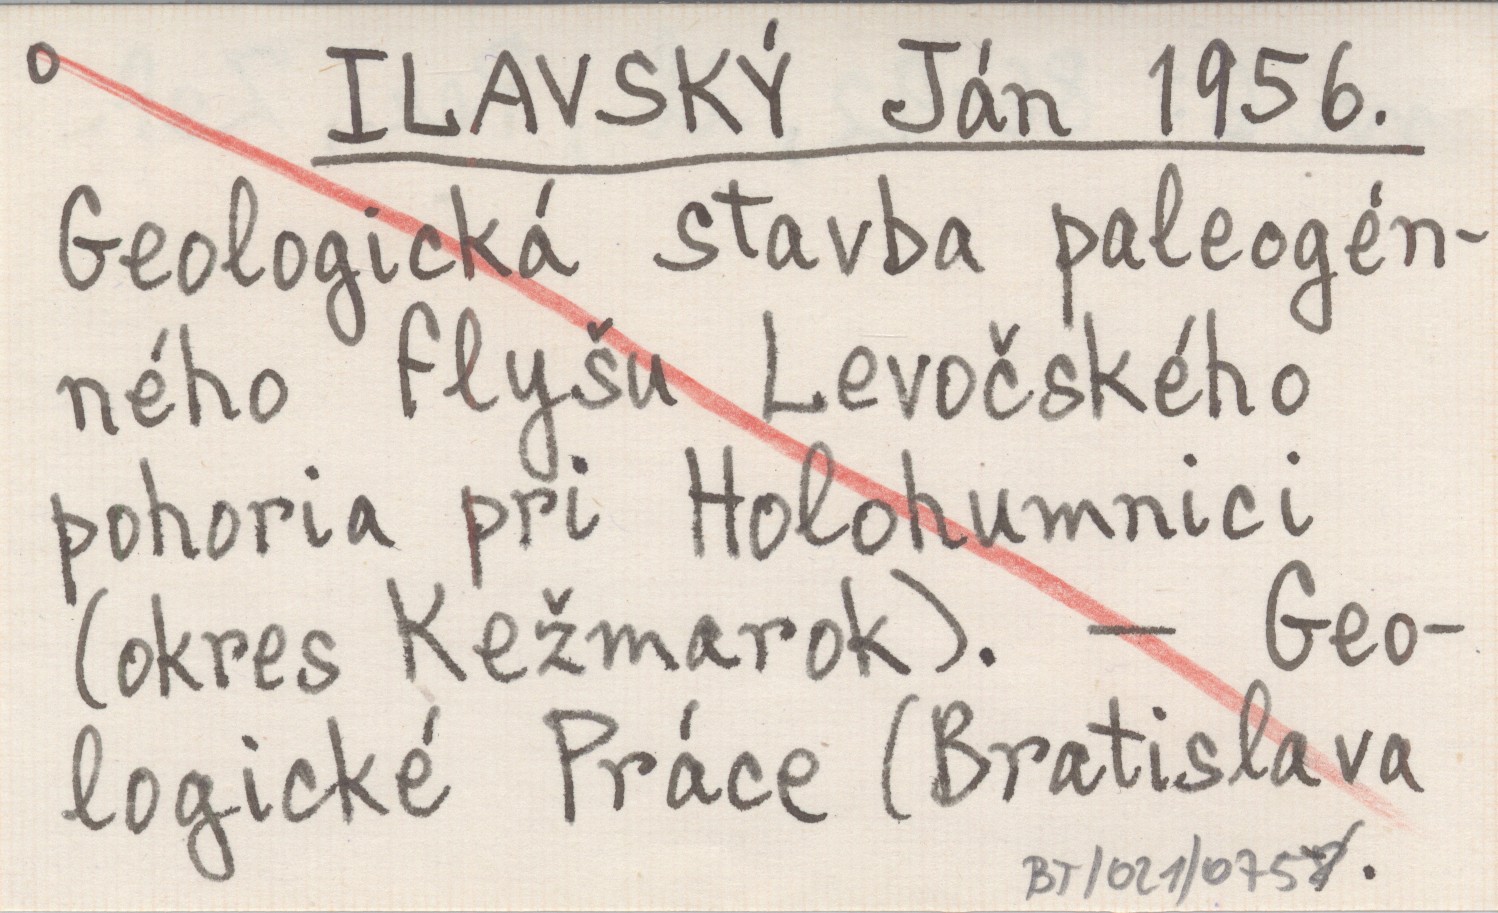 ILAVSKÝ Ján 1956.
Geologická stavba paleogén-
ného flyšu Levočského
pohoria pri Holohumnici
(okres Kežmarok). — Geo-
logické Práce (Bratislava